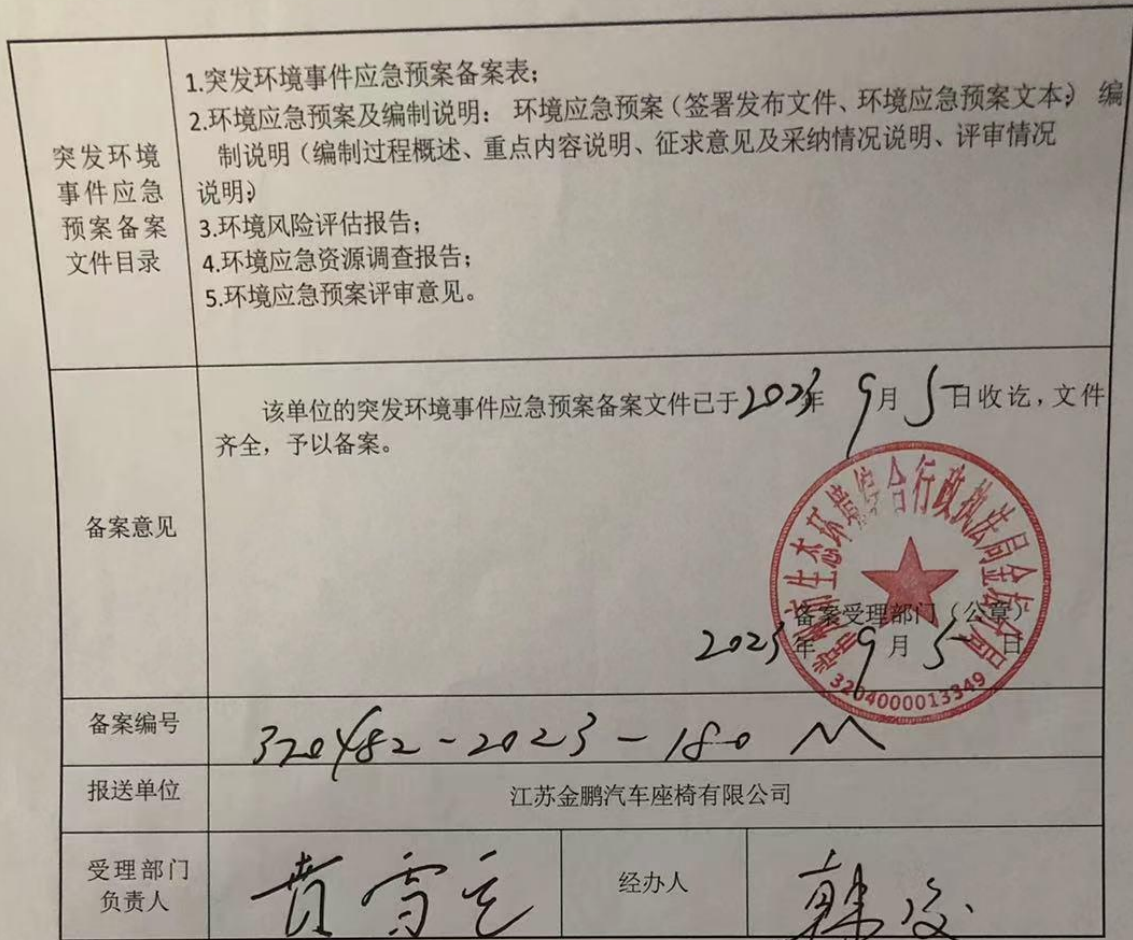 突发环境
事件应急
预案备案
文件目录
1.突发环境事件应急预案备案表；
2.环境应急预案及编制说明： 环境应急预案（签署发布文件、环境应急预案文本） 编
制说明（编制过程概述、重点内容说明、征求意见及采纳情况说明、评审情况
说明）
3.环境风险评估报告；
4.环境应急资源调查报告；
5.环境应急预案评审意见。
备案意见
该单位的突发环境事件应急预案备案文件已于2023年 9月5日收讫，文件
齐全，予以备案。
生态环境综合行政执法局金坛分局
备案受理部门（公章）
2023年 9月 5日
3204000013349
备案编号
320482-2023-180 M
报送单位
江苏金鹏汽车座椅有限公司
受理部门
负责人
经办人